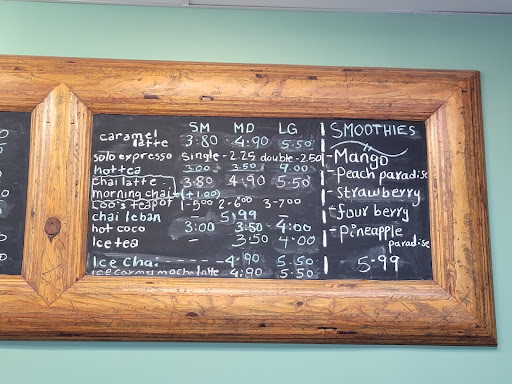 SM MD LG
caramel latte 3:80 4:90 5:50
solo expresso single - 2.25 double - 2.50
hot tea 3:00 3:50 4:00
chai latte 3:80 4:90 5:50
morning chai (+1.00)
coo's teapot 1-5:00 2-6:00 3-7:00
chai leban - 5:99 -
hot coco 3:00 3:50 4:00
Ice tea - 3:50 4:00
Ice chai - - - - 4:90 5.50
ice carmel mocha latte 4:90 5.50
SMOOTHIES
- Mango
- Peach paradise
- Strawberry
- four berry
- Pineapple
paradise
5.99